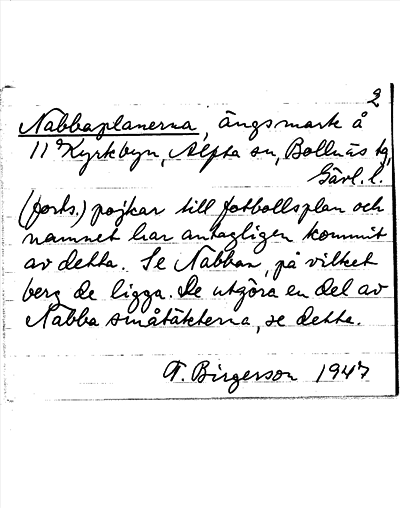 2
Nabbaplanerna, ängsmark å
11 Kyrkbyn, Alfta sn, Bollnäs tg,
Gävl. l.
(forts.) pojkar till fotbollsplan och
namnet har antagligen kommit
av detta. Se Nabban, på vilket
berg de ligga. De utgöra en del av
Nabba småtäkterna, se detta.
F. Birgerson 1947